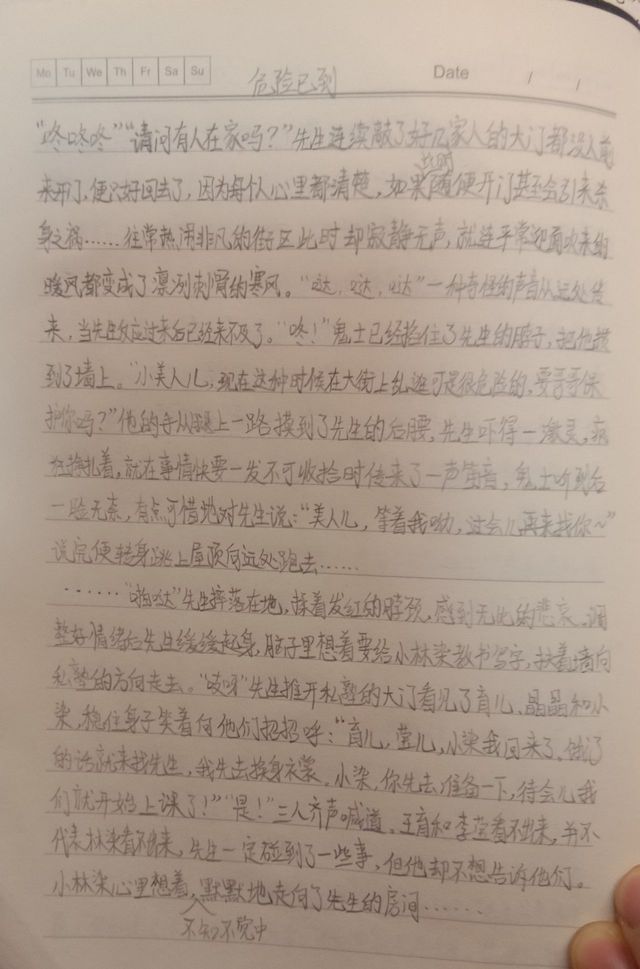 Mo Tu We Th Fr Sa Su
危险已到
Date / /
“咚咚咚”“请问有人在家吗？”先生连续敲了好几家人的大门都没人前
来开门，便只好回去了，因为每个人心里都清楚，如果此时随便开门甚至会引来杀
身之祸……往常热闹非凡的街区此时却寂静无声，就连平常迎面吹来的
暖风都变成了凛冽刺骨的寒风。“哒，哒，哒”一种奇怪的声音从远处传
来，当先生反应过来后已经来不及了。“咚！”鬼士已经掐住了先生的脖子，把他摁
到了墙上。“小美人儿，现在这种时候在大街上乱逛可是很危险的，要哥哥保
护你吗？”他的手从腿上一路摸到了先生的后腰，先生吓得一激灵，疯
狂挣扎着，就在事情快要一发不可收拾时传来了一声笛音，鬼士听到后
一脸无奈，有点可惜地对先生说：“美人儿，等着我呦，过会儿再来找你~”
说完便转身跳上屋顶向远处跑去……
……“啪哒”先生摔落在地，揉着发红的脖颈，感到无比的悲哀。调
整好情绪后先生缓缓起身，脑子里想着要给小林染教书写字，扶着墙向
私塾的方向走去。“吱呀”先生推开私塾的大门看见了育儿、晶晶和小
染，稳住身子笑着向他们招招呼：“育儿，莹儿，小染我回来了。饿了
的话就来找先生，我先去换身衣裳。小染，你先去准备一下，待会儿我
们就开始上课了！”“是！”三人齐声喊道。王育和李莹看不出来，并不
代表林染看不出来，先生一定碰到了一些事，但他却不想告诉他们。
小林染心里想着，不知不觉中默默地走向了先生的房间……